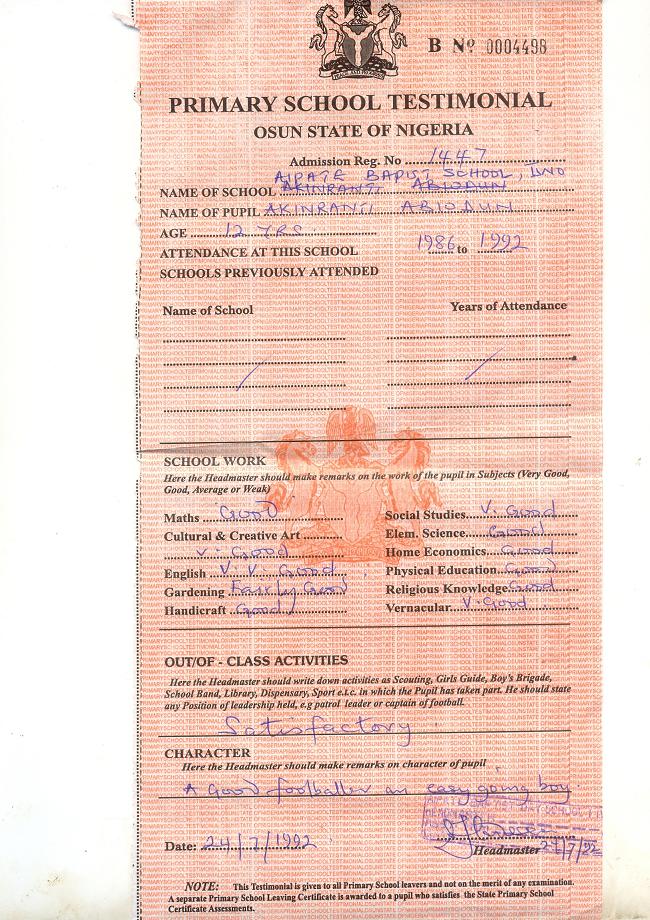 B No 0004498
PRIMARY SCHOOL TESTIMONIAL
OSUN STATE OF NIGERIA
Admission Reg. No 1447
AIPATE BAPIST SCHOOL, IWO
NAME OF SCHOOL AKINRANTI ABIODUN
NAME OF PUPIL AKINRANTI ABIODUN
AGE 12 YRS.
ATTENDANCE AT THIS SCHOOL 1986 to 1992
SCHOOLS PREVIOUSLY ATTENDED
Name of School Years of Attendance
SCHOOL WORK
Here the Headmaster should make remarks on the work of the pupil in Subjects (Very Good,
Good, Average or Weak)
Maths Good
Cultural & Creative Art
V. Good
English V. V. Good
Gardening Fairly Good
Handicraft Good
Social Studies V. Good
Elem. Science Good
Home Economics Good
Physical Education Good
Religious Knowledge Good
Vernacular V. Good
OUT/OF - CLASS ACTIVITIES
Here the Headmaster should write down activities as Scouting, Girls Guide, Boy's Brigade,
School Band, Library, Dispensary, Sport e.t.c. in which the Pupil has taken part. He should state
any Position of leadership held, e.g patrol leader or captain of football.
Satisfactory
CHARACTER
Here the Headmaster should make remarks on character of pupil
A Good footballer an easy going boy
Date: 24/7/1992
Headmaster 24/7/92
NOTE: This Testimonial is given to all Primary School leavers and not on the merit of any examination.
A separate Primary School Leaving Certificate is awarded to a pupil who satisfies the State Primary School
Certificate Assessments.